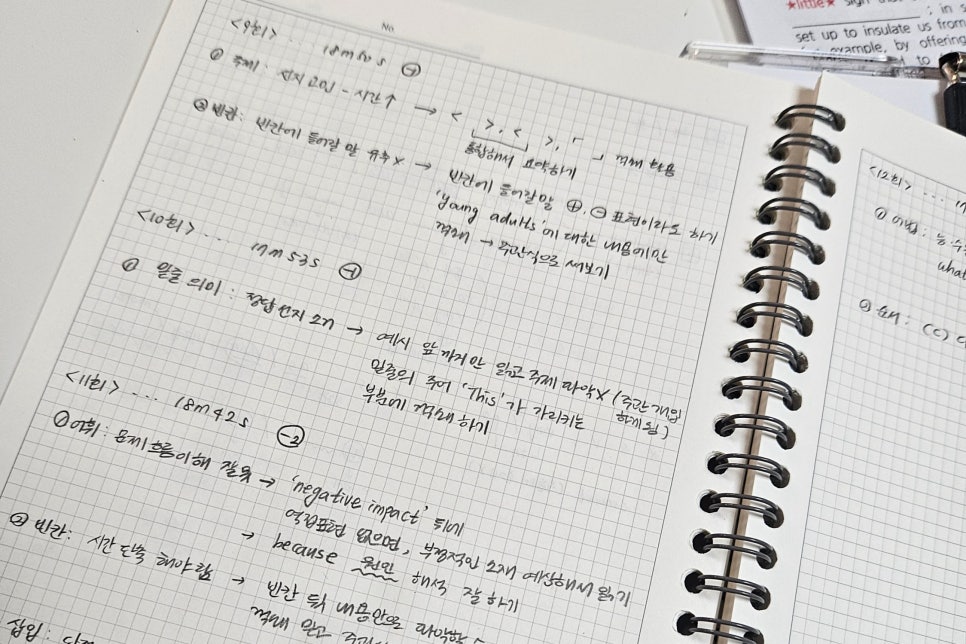 No.
<9회> ... 18m 50s
① 주제 : 선지 고민 - 시간↑ → < >, < >, 「 」
통합해서 요약하기
② 빈칸 : 빈칸에 들어갈 말 유추 X → 빈칸에 들어갈말 ⊕, ⊖ 표현이라도 하기
'young adults'에 대한 내용에만
→ 주관식으로 써보기
<10회> ... 17m 53s
① 밑줄 의미 : 정답선지 2개 → 예시 앞까지만 읽고 주제 파악X (주관개입 하게 됨)
밑줄의 주어 'This'가 가리키는
부분에 하기
<11회> ... 18m 42s ㊀
① 어휘 : 문제흐름이해 잘못 → 'negative impact' 뒤에
역접표현 없으면, 부정적인 소재 예상해서 읽기
→ because 원인 해석 잘 하기
② 빈칸 : 시간단축 해야 함 → 빈칸 뒤 내용만으로
읽고
삽입 :
<12회> ...
① 어법 :
what
② 순서 : (C)
*little* sign that
; in s
set up to insulate us from
example, by offering
to